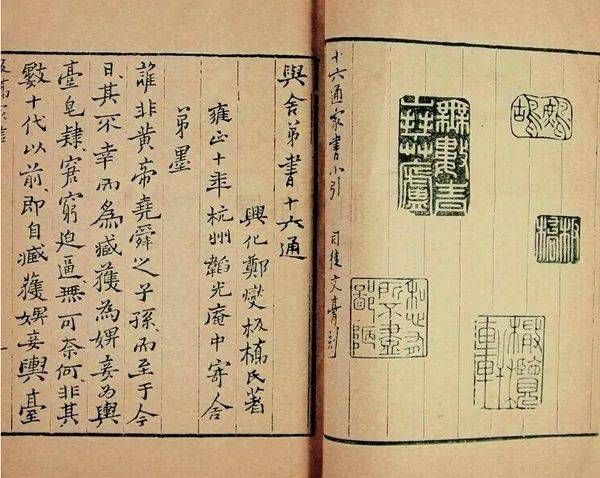 鷓鴣
無數青山拜草廬
板橋
私心有所不盡鄙陋
橄欖軒
十六通家書小引
司徒文膏刻
與舍弟書十六通
興化鄭燮板橋氏著
雍正十年杭州韜光庵中寄舍
弟墨
誰非黃帝堯舜之子孫而至于今
日其不幸而為臧獲為婢妾為輿
臺皂隸窘窮迫逼無可奈何非其
數十代以前即自臧獲婢妾輿臺